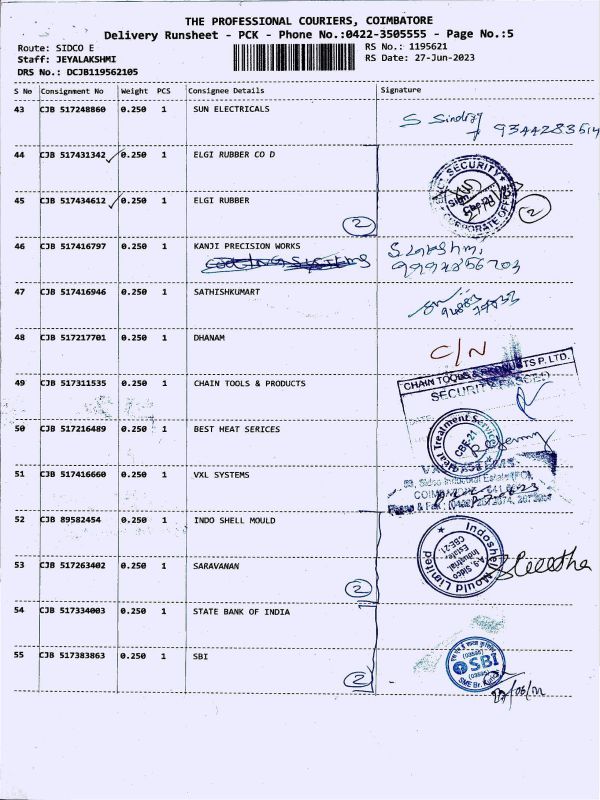 THE PROFESSIONAL COURIERS, COIMBATORE
Delivery Runsheet - PCK - Phone No.:0422-3505555 - Page No.:5
Route: SIDCO E
RS No.: 1195621
Staff: JEYALAKSHMI
RS Date: 27-Jun-2023
DRS No.: DCJB119562105
S No Consignment No Weight PCS Consignee Details Signature
43 CJB 517248860 0.250 1 SUN ELECTRICALS
44 CJB 517431342 0.250 1 ELGI RUBBER CO D
SECURITY
45 CJB 517434612 0.250 1 ELGI RUBBER
CORPORATE OFFICE
2 2
46 CJB 517416797 0.250 1 KANJI PRECISION WORKS
47 CJB 517416946 0.250 1 SATHISHKUMART
48 CJB 517217701 0.250 1 DHANAM
C/N
49 CJB 517311535 0.250 1 CHAIN TOOLS & PRODUCTS
CHAIN TOOLS & PRODUCTS P. LTD.
DATE
50 CJB 517216489 0.250 1 BEST HEAT SERICES
Heat Treatment Services
CBE-21
51 CJB 517416660 0.250 1 VXL SYSTEMS
52 CJB 89582454 0.250 1 INDO SHELL MOULD
Indoshell Mould Limited
A-9, Sidco
Industrial
Estate,
CBE-21
53 CJB 517263402 0.250 1 SARAVANAN
2
54 CJB 517334003 0.250 1 STATE BANK OF INDIA
55 CJB 517383863 0.250 1 SBI
SBI
2